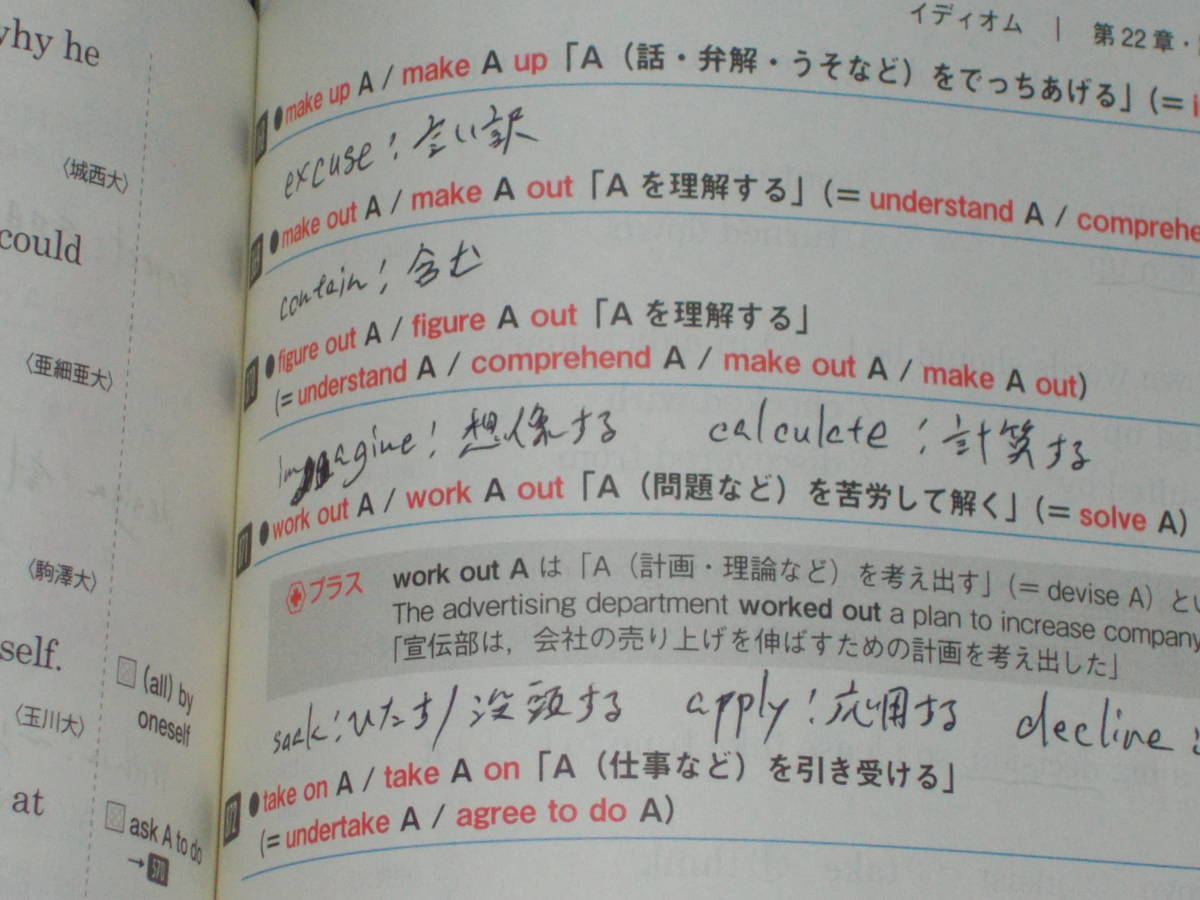 why he
〈城西大〉
could
〈亜細亜大〉
〈駒澤大〉
self.
(all) by
oneself
〈玉川大〉
at
ask A to do
→570
イディオム | 第22章・
●make up A / make A up「A（話・弁解・うそなど）をでっちあげる」(=
excuse : 言い訳
●make out A / make A out「A を理解する」(= understand A / comprehe
contain : 含む
●figure out A / figure A out「A を理解する」
(= understand A / comprehend A / make out A / make A out)
imagine : 想像する calculate : 計算する
571 ●work out A / work A out「A（問題など）を苦労して解く」(= solve A)
プラス work out A は「A（計画・理論など）を考え出す」(= devise A) とい
The advertising department worked out a plan to increase company
「宣伝部は，会社の売り上げを伸ばすための計画を考え出した」
soak : ひたす/没頭する apply : 応用する decline :
572 ●take on A / take A on「A（仕事など）を引き受ける」
(= undertake A / agree to do A)